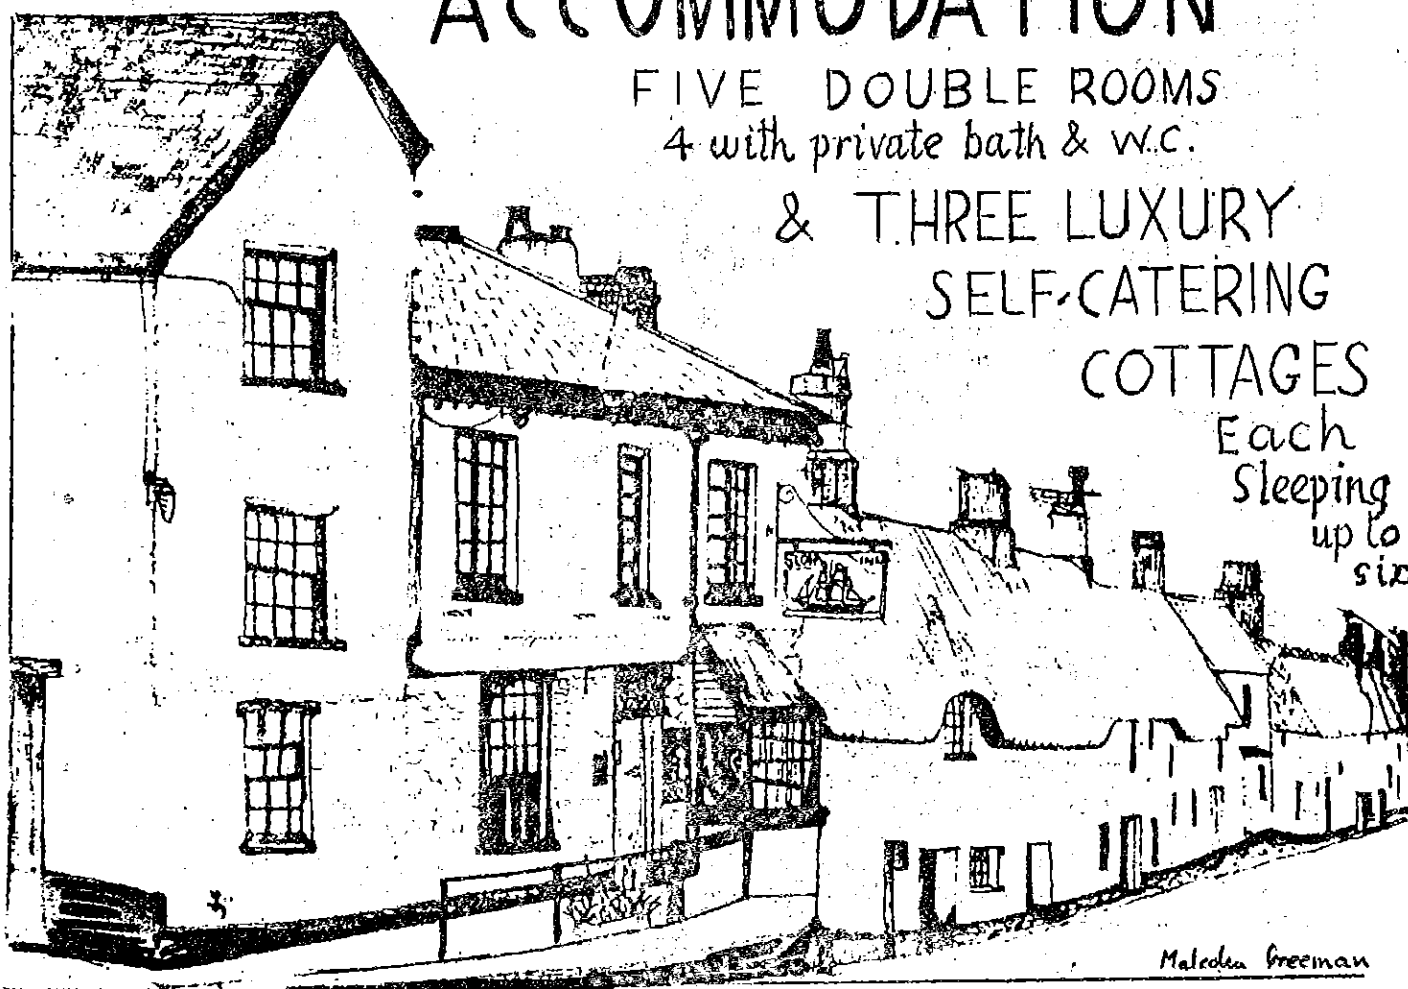 ACCOMMODATION
FIVE DOUBLE ROOMS
4 with private bath & W.C.
& THREE LUXURY
SELF-CATERING
COTTAGES
Each
Sleeping
up to
six
INN
Freeman